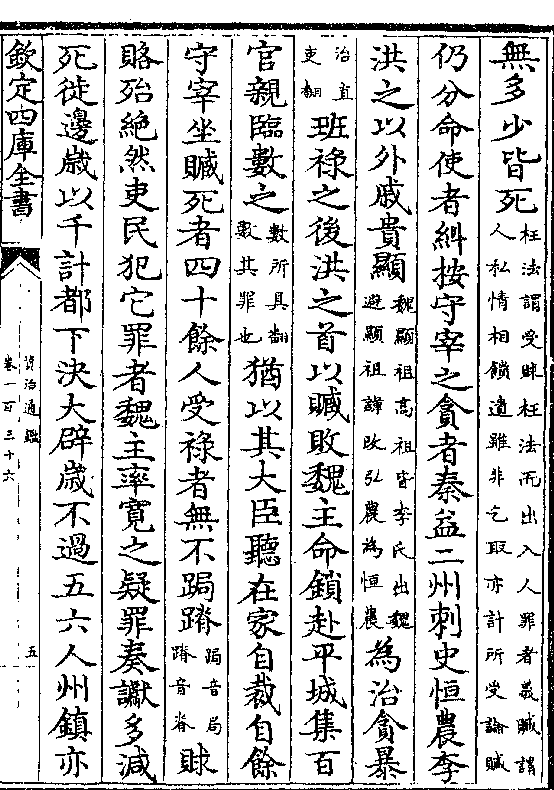 無多少皆死枉法謂受賕枉法而出入人罪者義贓謂人私情相饋遺雖非乞取亦計所受論贓
仍分命使者糾按守宰之貪者秦益二州刺史恒農李
洪之以外戚貴顯魏顯祖高祖皆李氏出魏避顯祖諱改弘農為恒農為治貪暴
治直吏翻班祿之後洪之首以贓敗魏主命鎖赴平城集百
官親臨數之數所具翻數其罪也猶以其大臣聽在家自裁自餘
守宰坐贓死者四十餘人受祿者無不跼蹐跼音局蹐音脊賕
賂殆絶然吏民犯它罪者魏主率寛之疑罪奏讞多減
死徙邊歳以千計都下決大辟歳不過五六人州鎮亦
欽定四庫全書
資治通鑑
卷一百三十六
五